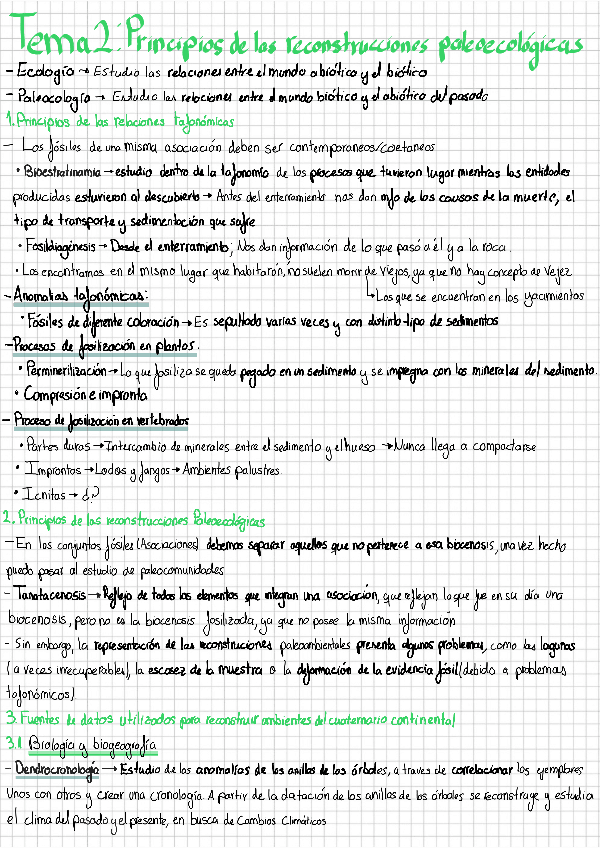 Tema 2: Principios de las reconstrucciones paleoecológicas
- Ecología → Estudia las relaciones entre el mundo abiótico y el biótico
- Paleocología → Estudia las relaciones entre el mundo biótico y el abiótico del pasado
1. Principios de las relaciones tafonómicas
- Los fósiles de una misma asociación deben ser contemporaneos/coetaneos
• Bioestratinamia → estudio dentro de la tafonomía de los procesos que tuvieron lugar mientras las entidades
producidas estuvieron al descubierto → Antes del enterramiento nos dan info de las causas de la muerte, el
tipo de transporte y sedimentación que sufre
• Fosildiagénesis → Desde el enterramiento; Nos dan información de lo que pasó a él y a la roca.
• Los encontramos en el mismo lugar que habitarón, no suelen morir de viejos, ya que no hay concepto de vejez
↳ Los que se encuentran en los yacimientos
- Anomalías tafonómicas:
• Fósiles de diferente coloración → Es sepultado varias veces y con distinto tipo de sedimentos
- Procesos de fosilización en plantas.
• Permineralización → Lo que fosiliza se queda pegado en un sedimento y se impregna con los minerales del sedimento.
• Compresión e impronta
- Proceso de fosilización en vertebrados
• Partes duras → Intercambio de minerales entre el sedimento y el hueso → Nunca llega a compactarse
• Improntas → Lodos y fangos → Ambientes palustres
• Icnitas → ¿?
2. Principios de las reconstrucciones Paleoecológicas
- En los conjuntos fósiles (Asociaciones) debemos separar aquellos que no pertenece a esa biocenosis, una vez hecho
puedo pasar al estudio de paleocomunidades
- Tanatocenosis → Reflejo de todos los elementos que integran una asociación, que reflejan lo que fue en su día una
biocenosis, pero no es la biocenosis fosilizada, ya que no posee la misma información
- Sin embargo, la representación de las reconstruciones paleoambientales presenta algunos problemas, como las lagunas
(a veces irrecuperables), la escasez de la muestra o la deformación de la evidencia fósil (debido a problemas
tafonómicos)
3. Fuentes de datos utilizados para reconstruir ambientes del cuaternario continental
3.1 Biología y biogeografía
- Dendrocronología → Estudio de las anomalías de los anillos de los árboles, a traves de correlacionar los ejemplares
Unos con otros y crear una cronología. A partir de la datación de los anillos de los árboles se reconstruye y estudia
el clima del pasado y el presente, en busca de Cambios Climáticos